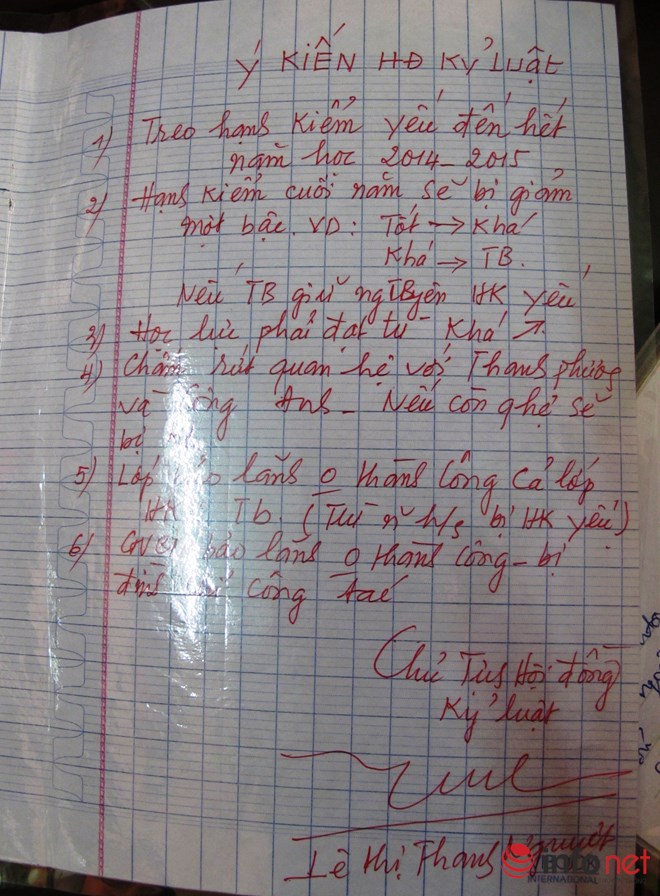 Ý KIẾN HĐ KỶ LUẬT
1) Treo hạnh kiểm yếu đến hết
năm học 2014-2015
2) Hạnh kiểm cuối năm sẽ bị giảm
một bậc. VD: Tốt → Khá
Khá → TB.
Nếu TB giữ nguyên HK yếu
3) Học lực phải đạt từ Khá ↗.
4) Chấm dứt quan hệ với Thanh phương
và Anh - Nếu còn q.hệ sẽ
bị
5) Lớp bảo lãnh 0 thành công cả lớp
HK Tb. (Trừ h/s bị HK yếu)
6) GVCN bảo lãnh 0 thành công - bị
đình chỉ công tác
Chủ Tịch Hội đồng
Kỷ luật
Lê Thị Thanh
INTERNATIONAL
net